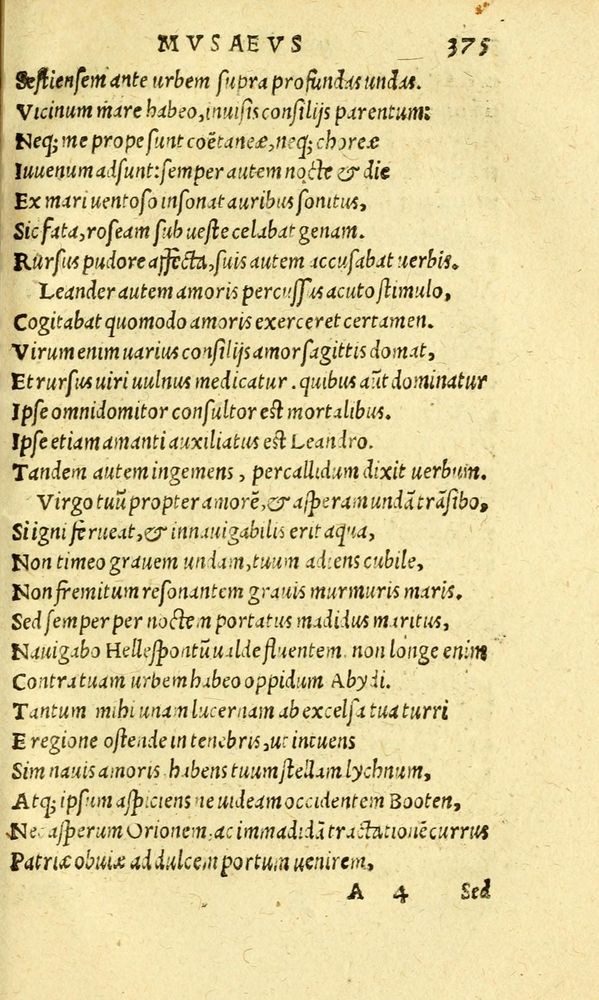 MVSAEVS 375
Sestiensem ante urbem supra profundas undas.
Vicinum mare habeo, inuisis consilijs parentum:
Neq; me prope sunt coëtaneæ, neq; choreæ
Iuuenum adsunt: semper autem nocte & die
Ex mari uentoso insonat auribus sonitus,
Sic fata, roseam sub ueste celabat genam.
Rursus pudore affecta, suis autem accusabat uerbis.
Leander autem amoris percussus acuto stimulo,
Cogitabat quomodo amoris exerceret certamen.
Virum enim uarius consilijs amor sagittis domat,
Et rursus uiri uulnus medicatur. quibus aūt dominatur
Ipse omnidomitor consultor est mortalibus.
Ipse etiam amanti auxiliatus est Leandro.
Tandem autem ingemens, percallidum dixit uerbum.
Virgo tuū propter amorē, & asperam undā trāsibo,
Si igni ferueat, & innauigabilis erit aqua,
Non timeo grauem undam, tuum adiens cubile,
Non fremitum resonantem grauis murmuris maris.
Sed semper per noctem portatus madidus maritus,
Nauigabo Hellespontū ualde fluentem. non longe enim
Contra tuam urbem habeo oppidum Abydi.
Tantum mihi unam lucernam ab excelsa tua turri
E regione ostende in tenebris, ut intuens
Sim nauis amoris habens tuum stellam lychnum,
Atq; ipsum aspiciens ne uideam occidentem Booten,
Nec asperum Orionem, ac immadidā tractationē currus
Patriæ obuiæ ad dulcem portum uenirem,
A 4 Sed